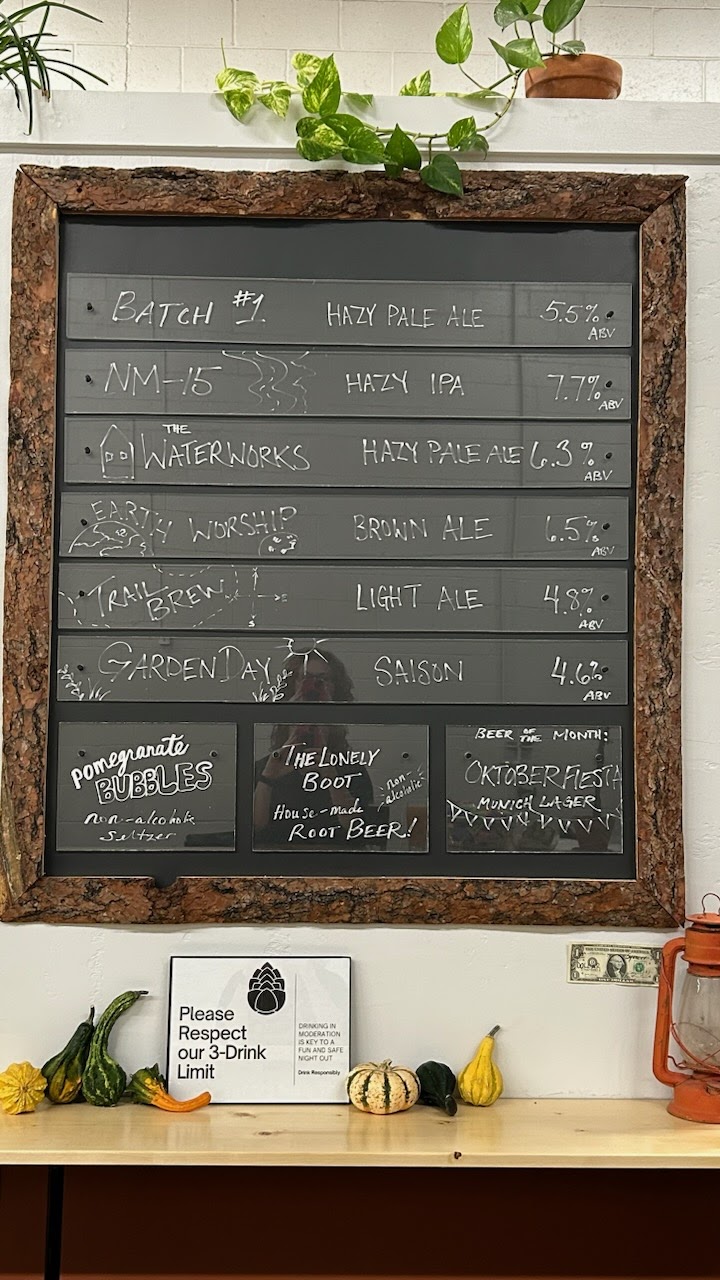 BATCH #1 HAZY PALE ALE 5.5% ABV
NM-15 HAZY IPA 7.7% ABV
THE
WATERWORKS HAZY PALE ALE 6.3% ABV
EARTH WORSHIP BROWN ALE 6.5% ABV
TRAIL BREW LIGHT ALE 4.8% ABV
GARDEN DAY SAISON 4.6% ABV
pomegranate
BUBBLES
non-alcoholic
Seltzer
THE LONELY
BOOT
non-
alcoholic
House-made
ROOT BEER!
BEER OF THE MONTH:
OKTOBERFIESTA
MUNICH LAGER
Please
Respect
our 3-Drink
Limit
DRINKING IN
MODERATION
IS KEY TO A
FUN AND SAFE
NIGHT OUT
Drink Responsibly